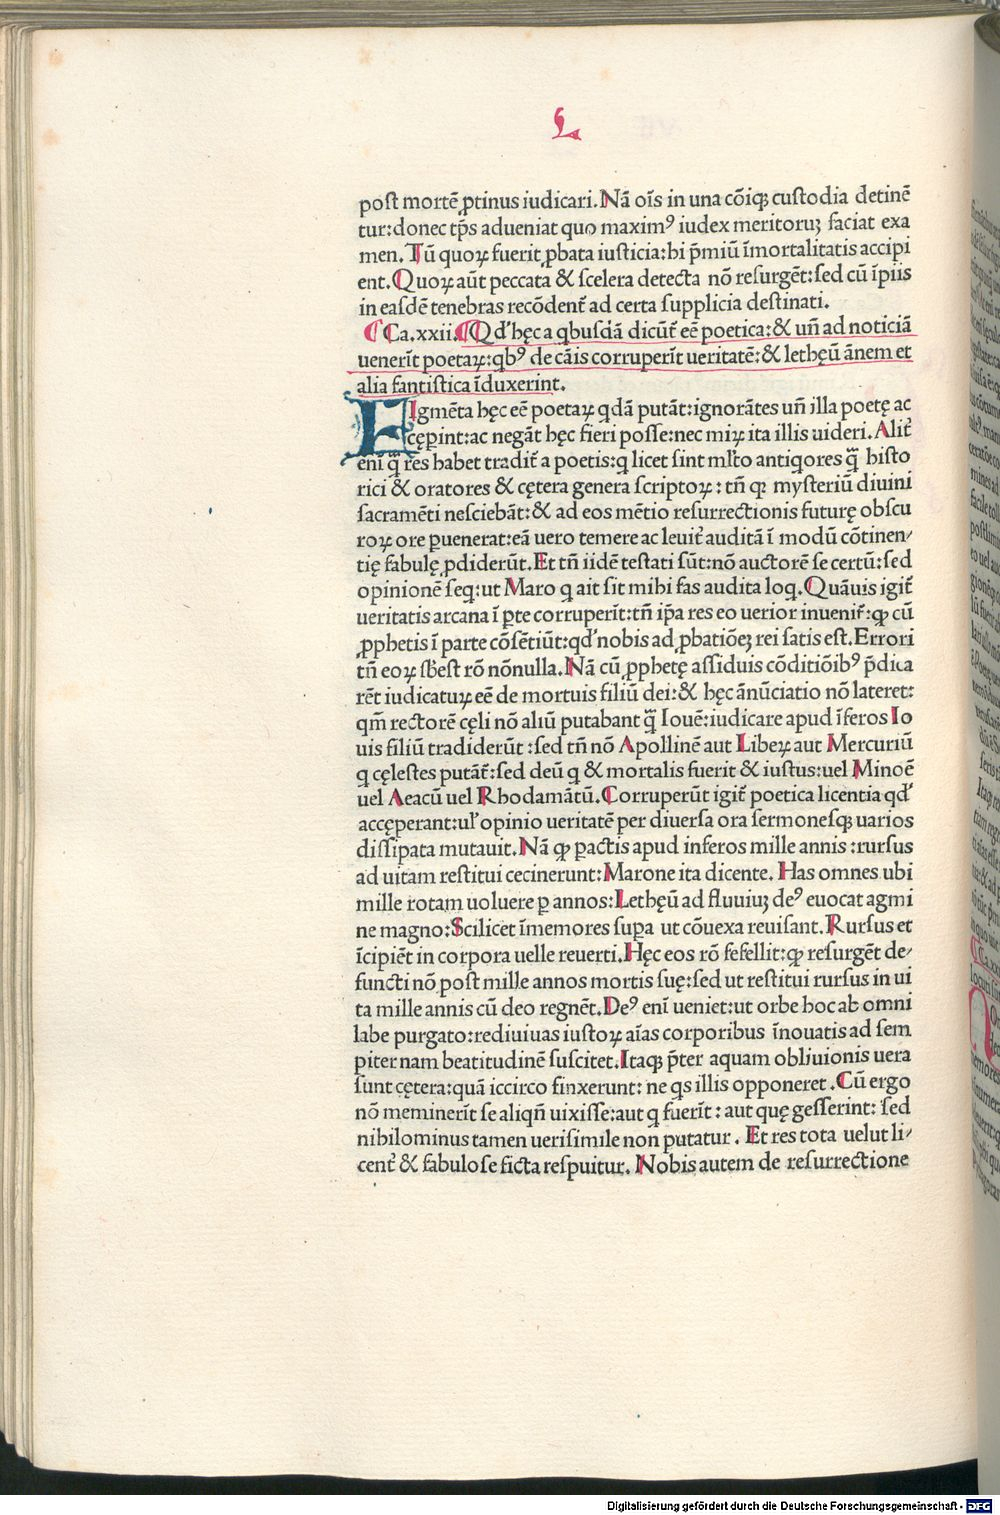 L
post mortē ꝓtinus iudicari. Nā oīs in una cōiqꝫ custodia detinē
tur: donec tp̄s adueniat quo maximꝰ iudex meritoruꝫ faciat exa
men. Tū quoꝝ fuerit ꝓbata iusticia: hi p̄miū īmortalitatis accipi
ent. Quoꝝ aūt peccata & scelera detecta nō resurgēt: sed cū īpiis
in easdē tenebras recōdent᷑ ad certa supplicia destinati.
¶ Ca. xxii. ¶ Qd' hęc a qbusdā dicūt᷑ eē poetica: & uñ ad noticiā
uenerīt poetaꝝ: qbꝰ de cāis corruperīt ueritatē: & lethęū ānem et
alia fantistica īduxerint.
FIgmēta hęc eē poetaꝝ qdā putāt: ignorātes uñ illa poetę ac
cęperint: ac negāt hęc fieri posse: nec miꝝ ita illis uideri. Alit᷑
eni q̄ res habet tradit᷑ a poetis: q licet sint ml̄to antiqores q̄ histo
rici & oratores & cętera genera scriptoꝝ: tn̄ qꝛ mysteriū diuini
sacramēti nesciebāt: & ad eos mētio resurrectionis futurę obscu
roꝝ ore puenerat: eā uero temere ac leuit᷑ auditā ī modū cōtinen/
tię fabulę ꝓdiderūt. Et tn̄ iidē testati sūt: nō auctorē se certū: sed
opinionē seq: ut Maro q ait sit mihi fas audita loq. Quāuis igit᷑
ueritatis arcana ī pte corruperīt: tn̄ ip̄a res eo uerior inuenit᷑: ꝙ cū
ꝓphetis ī parte cōsētiūt: qd' nobis ad ꝓbatiōeꝫ rei satis est. Errori
tn̄ eoꝝ sb̄est rō nōnulla. Nā cū ꝓphetę assiduis cōditiōibꝰ p̄dica
rēt iudicatuꝝ eē de mortuis filiū dei: & hęc ānūciatio nō lateret:
qm̄ rectorē cęli nō aliū putabant q̄ Iouē: iudicare apud īferos Io
uis filiū tradiderūt: sed tn̄ nō Apollinē aut Libeꝝ aut Mercuriū
q cęlestes putāt᷑: sed deū q & mortalis fuerit & iustus: uel Minoē
uel Aeacū uel Rhodamātū. Corruperūt igit᷑ poetica licentia qd'
accęperant: ul' opinio ueritatē per diuersa ora sermonesqꝫ uarios
dissipata mutauit. Nā ꝙ pactis apud inferos mille annis: rursus
ad uitam restitui cecinerunt: Marone ita dicente. Has omnes ubi
mille rotam uoluere p annos: Lethęū ad fluuiuꝫ deꝰ euocat agmi
ne magno: Scilicet īmemores supa ut cōuexa reuisant. Rursus et
īcipiēt in corpora uelle reuerti. Hęc eos rō fefellit: ꝙ resurgēt de/
functi nō post mille annos mortis suę: sed ut restitui rursus in ui
ta mille annis cū deo regnēt. Deꝰ eni ueniet: ut orbe hoc ab omni
labe purgato: rediuiuas iustoꝝ aīas corporibus īnouatis ad sem
piternam beatitudinē suscitet. Itaqꝫ p̄ter aquam obliuionis uera
sunt cętera: quā iccirco finxerunt: ne qs illis opponeret. Cū ergo
nō meminerīt se aliqn̄ uixisse: aut q fuerīt: aut quę gesserint: sed
nihilominus tamen uerisimile non putatur. Et res tota uelut li/
cent᷑ & fabulose ficta respuitur. Nobis autem de resurrectione
Digitalisierung gefördert durch die Deutsche Forschungsgemeinschaft - DFG